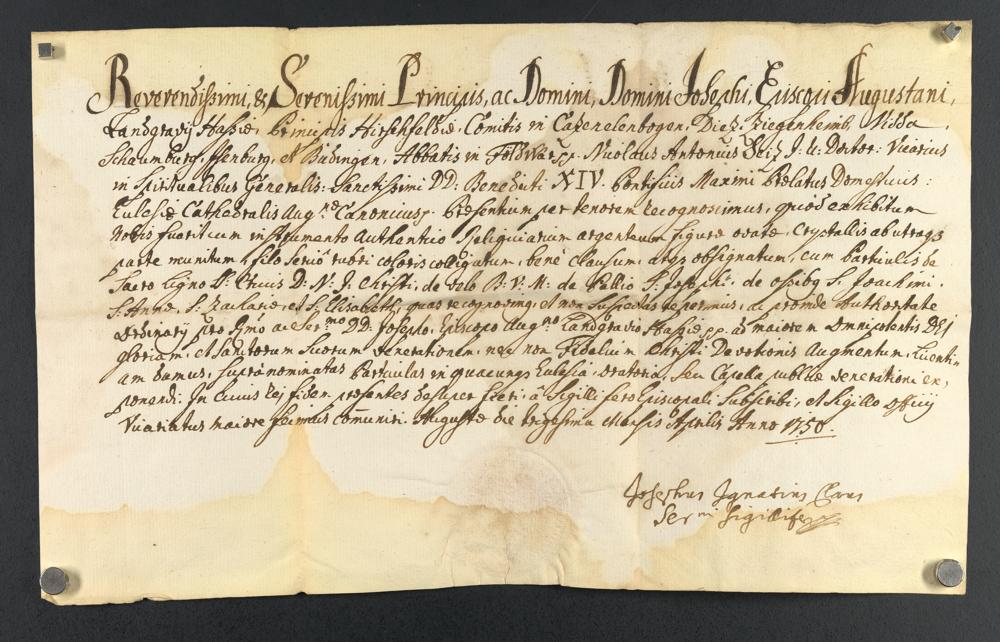 Reverendissimi, & Serenissimi Principis, ac Domini, Domini Josephi, Episcopi Augustani,
Landgravij Hassiæ, Principis Hirschfeldiæ, Comitis in Cazenelenbogen, Diez, Ziegenheimb, Nidda,
Schaumburg, Isenburg, et Büdingen, Abbatis in Földwár pp. Nicolaus Antonius Seiz J: U: Doctor: Vicarius
in Spiritualibus Generalis: Sanctissimi DD: Benedicti XIV. Pontificis Maximi Prælatus Domesticus:
Ecclesiæ Cathedralis Aug.næ Canonicus p. Præsentium per tenorem recognoscimus, quod exhibitum
Nobis fuerit cum instrumento Authentico Reliquiarium argenteum figuræ ovatæ, Crystallis ab utraq3
parte munitum, filo serico rubri coloris colligatum, benè clausum, atq3 obsignatum, cum Particulis de
Sacro ligno S: Crucis D: N: J: Christi, de velo B: V: M: de Pallio S. Josephi, de ossibq S. Joachimi,
S: Annæ, S. Zachariæ, et S. Elisabeth, quas recognovimq, et non suspectas reperimus, ac proinde Authoritate
Ordinariâ pro Rmo ac Ser:mo DD: Josepho, Episcopo Aug:no Landgravio Hassiæ pp. ad maiorem Omnipotentis DEI
gloriam, et Sanctorum suorum venerationem, nec non Fidelium Christi Devotionis Augmentum, Licenti-
am damus, supranominatas Particulas in quacunq3 Ecclesia, oratorio, seu Capella publicæ venerationi ex-
ponendi. In Cuius rej fidem præsentes desuper fieri, â Sigilli fero Episcopali Subscribi, et Sigillo Officij
Vicariatus maiore fecimus com̄uniri. Augustæ die trigesima Mensis Aprilis Anno 1750.
Josephus Ignatius Claus
Ser:mi Sigillifer